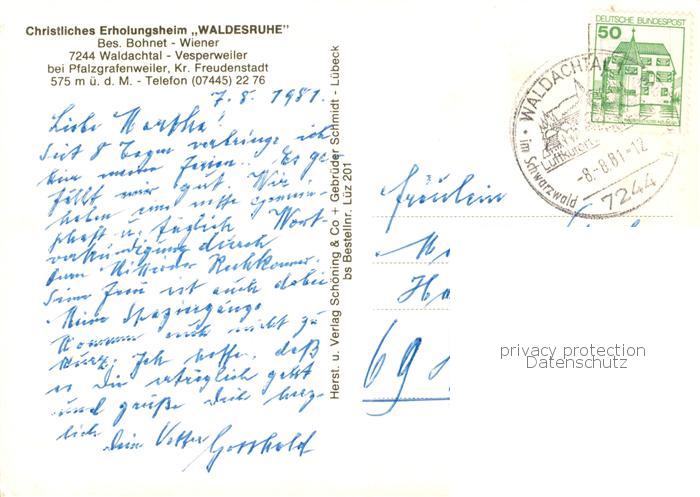 Christliches Erholungsheim „WALDESRUHE"
Bes. Bohnet - Wiener
7244 Waldachtal - Vesperweiler
bei Pfalzgrafenweiler, Kr. Freudenstadt
575 m ü. d. M. - Telefon (07445) 22 76
7.8.1981.
Liebe Martha!
Seit 8 Tagen verbringe ich
hier meine Ferien. Es ge-
fällt mir gut. Wir
haben eine nette Gemein-
schaft u. täglich Wort-
verkündigung durch
Seine Frau ist auch dabei
Meine Spaziergänge
kommen auch nicht zu
kurz. Ich hoffe, daß
es Dir erträglich geht
und grüße Dich herz-
lich Dein Vetter Gotthold
Herst. u. Verlag Schöning & Co + Gebrüder Schmidt - Lübeck
bs Bestellnr. Lüz 201
DEUTSCHE BUNDESPOST
50
WALDACHTAL
Luftkurort
-8.-8.81-12
im Schwarzwald
7244
Fräulein
M
Ha
69
privacy protection
Datenschutz